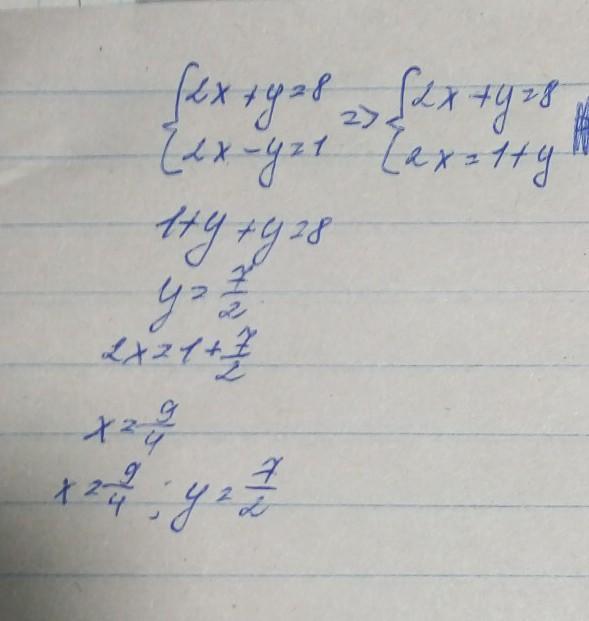 {2x+y=8 => {2x+y=8
{2x-y=1 {2x=1+y
1+y+y=8
y=7/2
2x=1+7/2
x=9/4
x=9/4; y=7/2